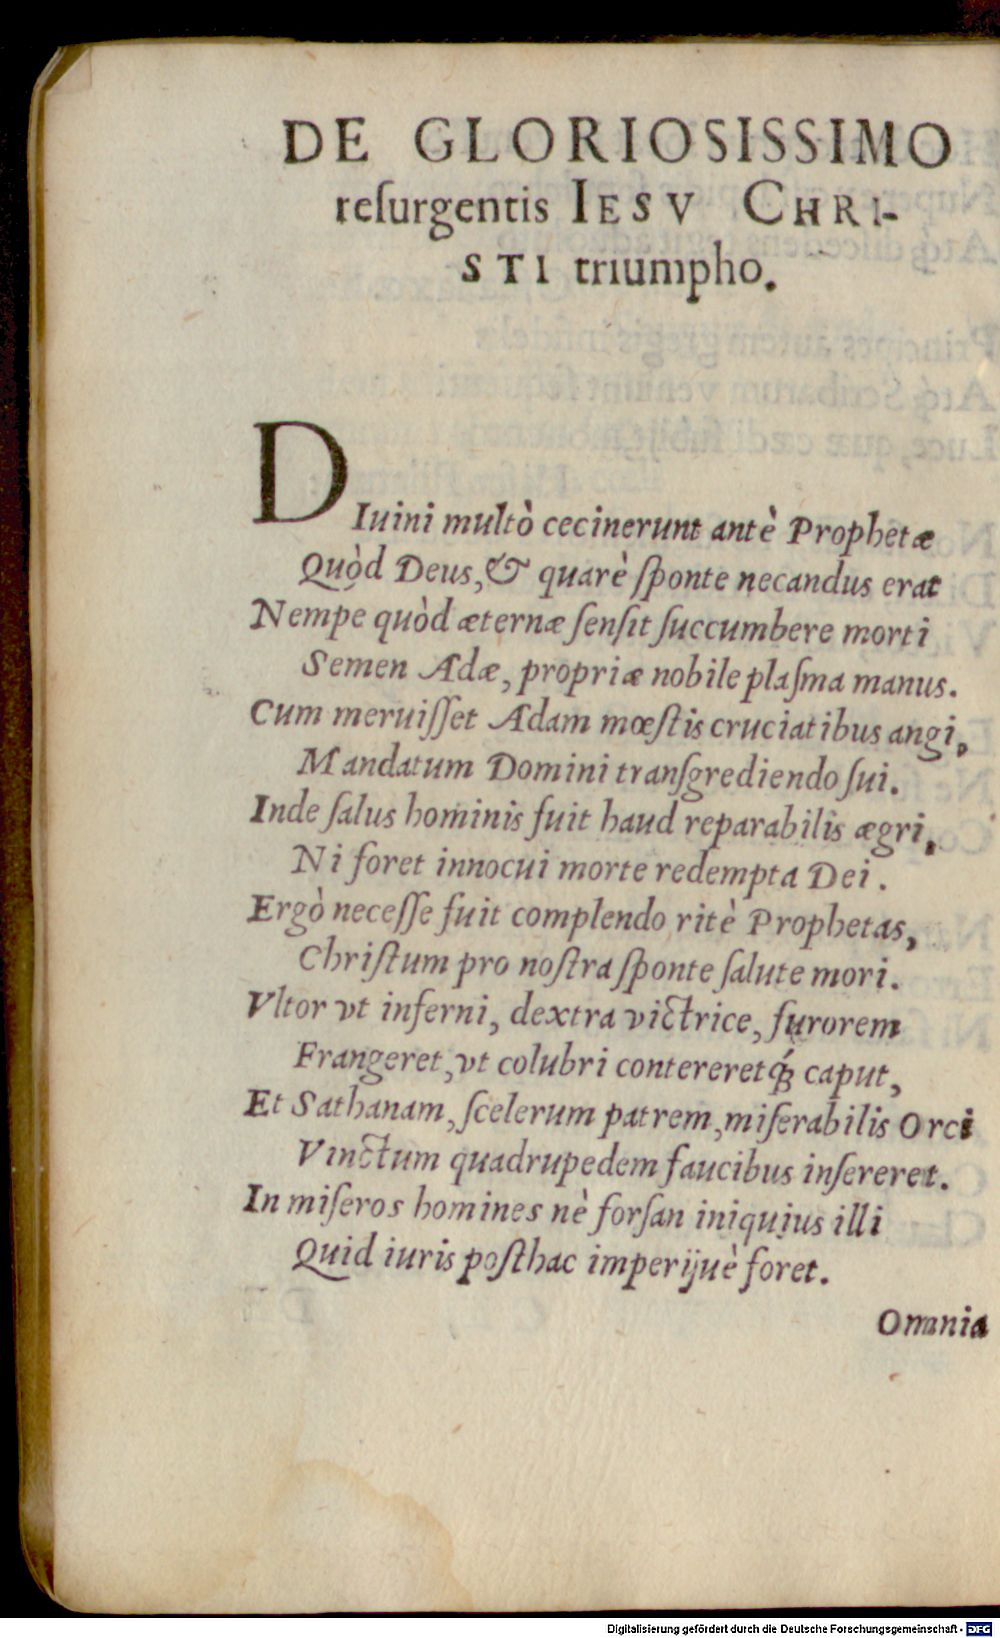 DE GLORIOSISSIMO
reſurgentis IESV CHRI-
STI triumpho.
DIuini multò cecinerunt antè Prophetæ
Quòd Deus, & quarè ſponte necandus erat
Nempe quòd æternæ ſenſit ſuccumbere morti
Semen Adæ, propriæ nobile plaſma manus.
Cum meruiſſet Adam mœſtis cruciatibus angi,
Mandatum Domini tranſgrediendo ſui.
Inde ſalus hominis fuit haud reparabilis ægri,
Ni foret innocui morte redempta Dei.
Ergò neceſſe fuit complendo ritè Prophetas,
Chriſtum pro noſtra ſponte ſalute mori.
Vltor vt inferni, dextra victrice, furorem
Frangeret, vt colubri contereretq́; caput,
Et Sathanam, ſcelerum patrem, miſerabilis Orci
Vinctum quadrupedem faucibus inſereret.
In miſeros homines nè forſan iniquius illi
Quid iuris poſthac imperijuè foret.
Omnia
Digitalisierung gefördert durch die Deutsche Forschungsgemeinschaft - DFG